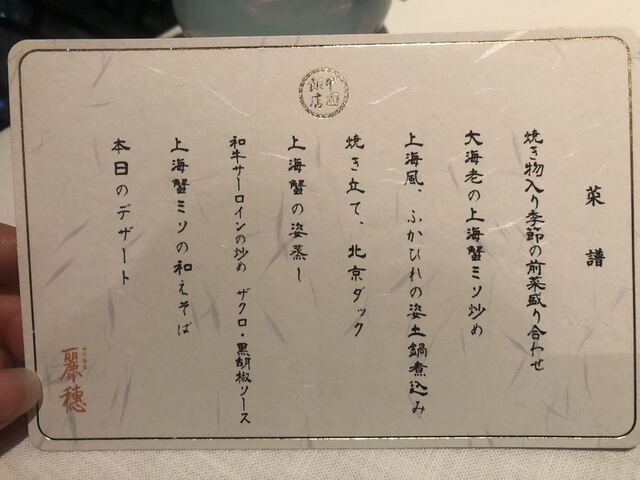 中国飯店
菜譜
焼き物入り季節の前菜盛り合わせ
大海老の上海蟹ミソ炒め
上海風、ふかひれの姿土鍋煮込み
焼き立て、北京ダック
上海蟹の姿蒸し
和牛サーロインの炒め ザクロ・黒胡椒ソース
上海蟹ミソの和えそば
本日のデザート
麗穂